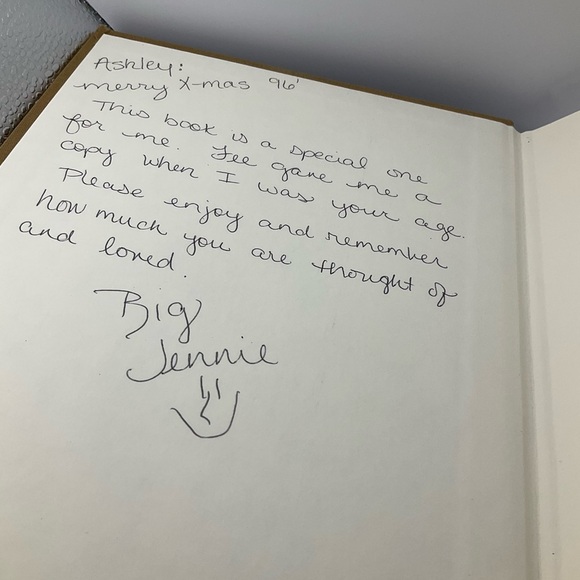 Ashley:
merry X-mas 96'
This book is a special one
for me. Lee gave me a
copy when I was your age.
Please enjoy and remember
how much you are thought of
and loved.
Big
Jennie